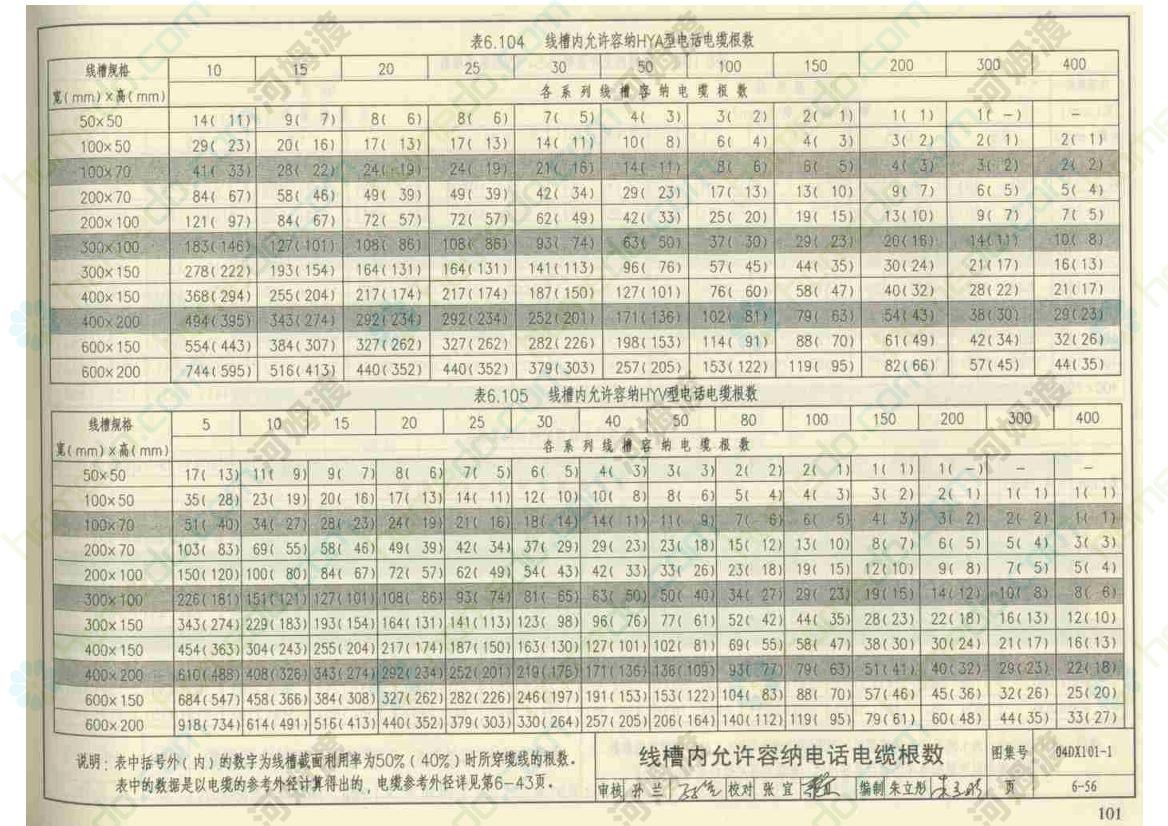 表6.104 线槽内允许容纳HYA型电话电缆根数
线槽规格 10 15 20 25 30 50 100 150 200 300 400
宽(mm)×高(mm) 各系列线槽容纳电缆根数
50×50 14( 11) 9( 7) 8( 6) 8( 6) 7( 5) 4( 3) 3( 2) 2( 1) 1( 1) 1( -) -
100×50 29( 23) 20( 16) 17( 13) 17( 13) 14( 11) 10( 8) 6( 4) 4( 3) 3( 2) 2( 1) 2( 1)
100×70 41( 33) 28( 22) 24( 19) 24( 19) 21( 16) 14( 11) 8( 6) 6( 5) 4( 3) 3( 2) 2( 2)
200×70 84( 67) 58( 46) 49( 39) 49( 39) 42( 34) 29( 23) 17( 13) 13( 10) 9( 7) 6( 5) 5( 4)
200×100 121( 97) 84( 67) 72( 57) 72( 57) 62( 49) 42( 33) 25( 20) 19( 15) 13(10) 9( 7) 7( 5)
300×100 183(146) 127(101) 108( 86) 108( 86) 93( 74) 63( 50) 37( 30) 29( 23) 20(16) 14(11) 10( 8)
300×150 278(222) 193(154) 164(131) 164(131) 141(113) 96( 76) 57( 45) 44( 35) 30(24) 21(17) 16(13)
400×150 368(294) 255(204) 217(174) 217(174) 187(150) 127(101) 76( 60) 58( 47) 40(32) 28(22) 21(17)
400×200 494(395) 343(274) 292(234) 292(234) 252(201) 171(136) 102( 81) 79( 63) 54(43) 38(30) 29(23)
600×150 554(443) 384(307) 327(262) 327(262) 282(226) 198(153) 114( 91) 88( 70) 61(49) 42(34) 32(26)
600×200 744(595) 516(413) 440(352) 440(352) 379(303) 257(205) 153(122) 119( 95) 82(66) 57(45) 44(35)
表6.105 线槽内允许容纳HYV型电话电缆根数
线槽规格 5 10 15 20 25 30 40 50 80 100 150 200 300 400
宽(mm)×高(mm) 各系列线槽容纳电缆根数
50×50 17( 13) 11( 9) 9( 7) 8( 6) 7( 5) 6( 5) 4( 3) 3( 3) 2( 2) 2( 1) 1( 1) 1( -) - -
100×50 35( 28) 23( 19) 20( 16) 17( 13) 14( 11) 12( 10) 10( 8) 8( 6) 5( 4) 4( 3) 3( 2) 2( 1) 1( 1) 1( 1)
100×70 51( 40) 34( 27) 28( 23) 24( 19) 21( 16) 18( 14) 14( 11) 11( 9) 7( 6) 6( 5) 4( 3) 3( 2) 2( 2) 1( 1)
200×70 103( 83) 69( 55) 58( 46) 49( 39) 42( 34) 37( 29) 29( 23) 23( 18) 15( 12) 13( 10) 8( 7) 6( 5) 5( 4) 3( 3)
200×100 150(120) 100( 80) 84( 67) 72( 57) 62( 49) 54( 43) 42( 33) 33( 26) 23( 18) 19( 15) 12(10) 9( 8) 7( 5) 5( 4)
300×100 226(181) 151(121) 127(101) 108( 86) 93( 74) 81( 65) 63( 50) 50( 40) 34( 27) 29( 23) 19(15) 14(12) 10( 8) 8( 6)
300×150 343(274) 229(183) 193(154) 164(131) 141(113) 123( 98) 96( 76) 77( 61) 52( 42) 44( 35) 28(23) 22(18) 16(13) 12(10)
400×150 454(363) 304(243) 255(204) 217(174) 187(150) 163(130) 127(101) 102( 81) 69( 55) 58( 47) 38(30) 30(24) 21(17) 16(13)
400×200 610(488) 408(326) 343(274) 292(234) 252(201) 219(175) 171(136) 136(109) 93( 77) 79( 63) 51(41) 40(32) 29(23) 22(18)
600×150 684(547) 458(366) 384(308) 327(262) 282(226) 246(197) 191(153) 153(122) 104( 83) 88( 70) 57(46) 45(36) 32(26) 25(20)
600×200 918(734) 614(491) 516(413) 440(352) 379(303) 330(264) 257(205) 206(164) 140(112) 119( 95) 79(61) 60(48) 44(35) 33(27)
说明：表中括号外（内）的数字为线槽截面利用率为50%（40%）时所穿缆线的根数。
表中的数据是以电缆的参考外径计算得出的，电缆参考外径详见第6-43页。
线槽内允许容纳电话电缆根数 图集号 04DX101-1
审核 孙兰 校对 张宜 编制 朱立彤 页 6-56
101